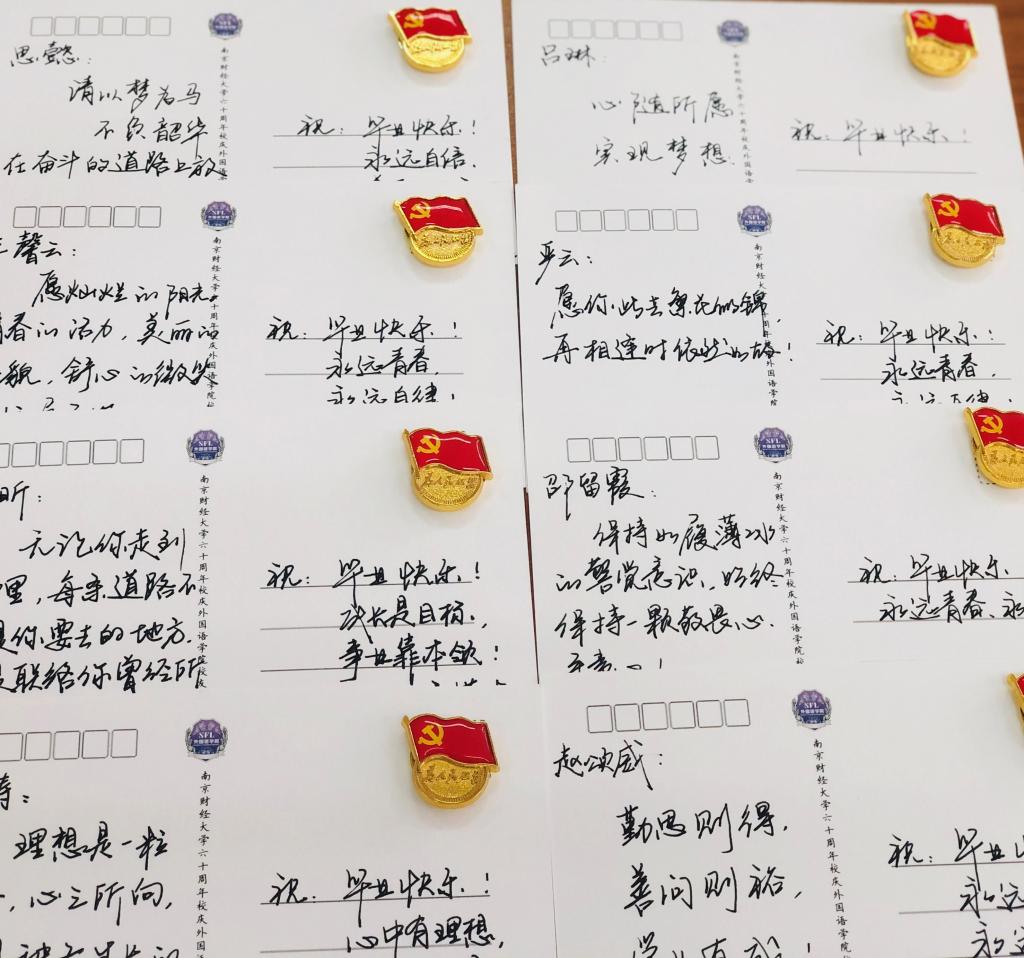 思懿：
请以梦为马
不负韶华
在奋斗的道路上放
祝：毕业快乐！
永远自信
南京财经大学六十周年校庆外国语学
吕琳：
心随所愿
实现梦想
祝：毕业快乐！
南京财经大学六十周年校庆外国语
馨云：
愿灿烂的阳光
春的活力，美丽的
貌，舒心的微笑
祝：毕业快乐！
永远青春，
永远自律！
南京财经大学六十周年校庆外国语学院
严云：
愿你此去繁花似锦，
再相逢时依然如故！
祝：毕业快乐！
永远青春，
永远自律！
南京财经大学六十周年校庆外国语学院
昕：
无论你走到
哪里，每条道路不
是你要去的地方，
是联络你曾经所
祝：毕业快乐！
成长是目标，
事业靠本领！
NFL
外国语学院
南京财经大学六十周年校庆外国语学院校友
为人民服务
邵留霞：
保持如履薄冰
的警觉意识，始终
保持一颗敬畏心
祝：毕业快乐
永远青春、永
NFL
外国语学院
南京财经大学六十周年校庆外国语学院
理想是一粒
，心之所向，
祝：毕业快乐！
心中有理想，
NFL
外国语学院
南京财经大学六十周年校庆外国语学院
为人民服务
赵颂威：
勤思则得，
善问则裕，
学业有成！
祝：毕业
永远
永远
NFL
外国语学院
南京财经大学六十周年校庆外国语学院